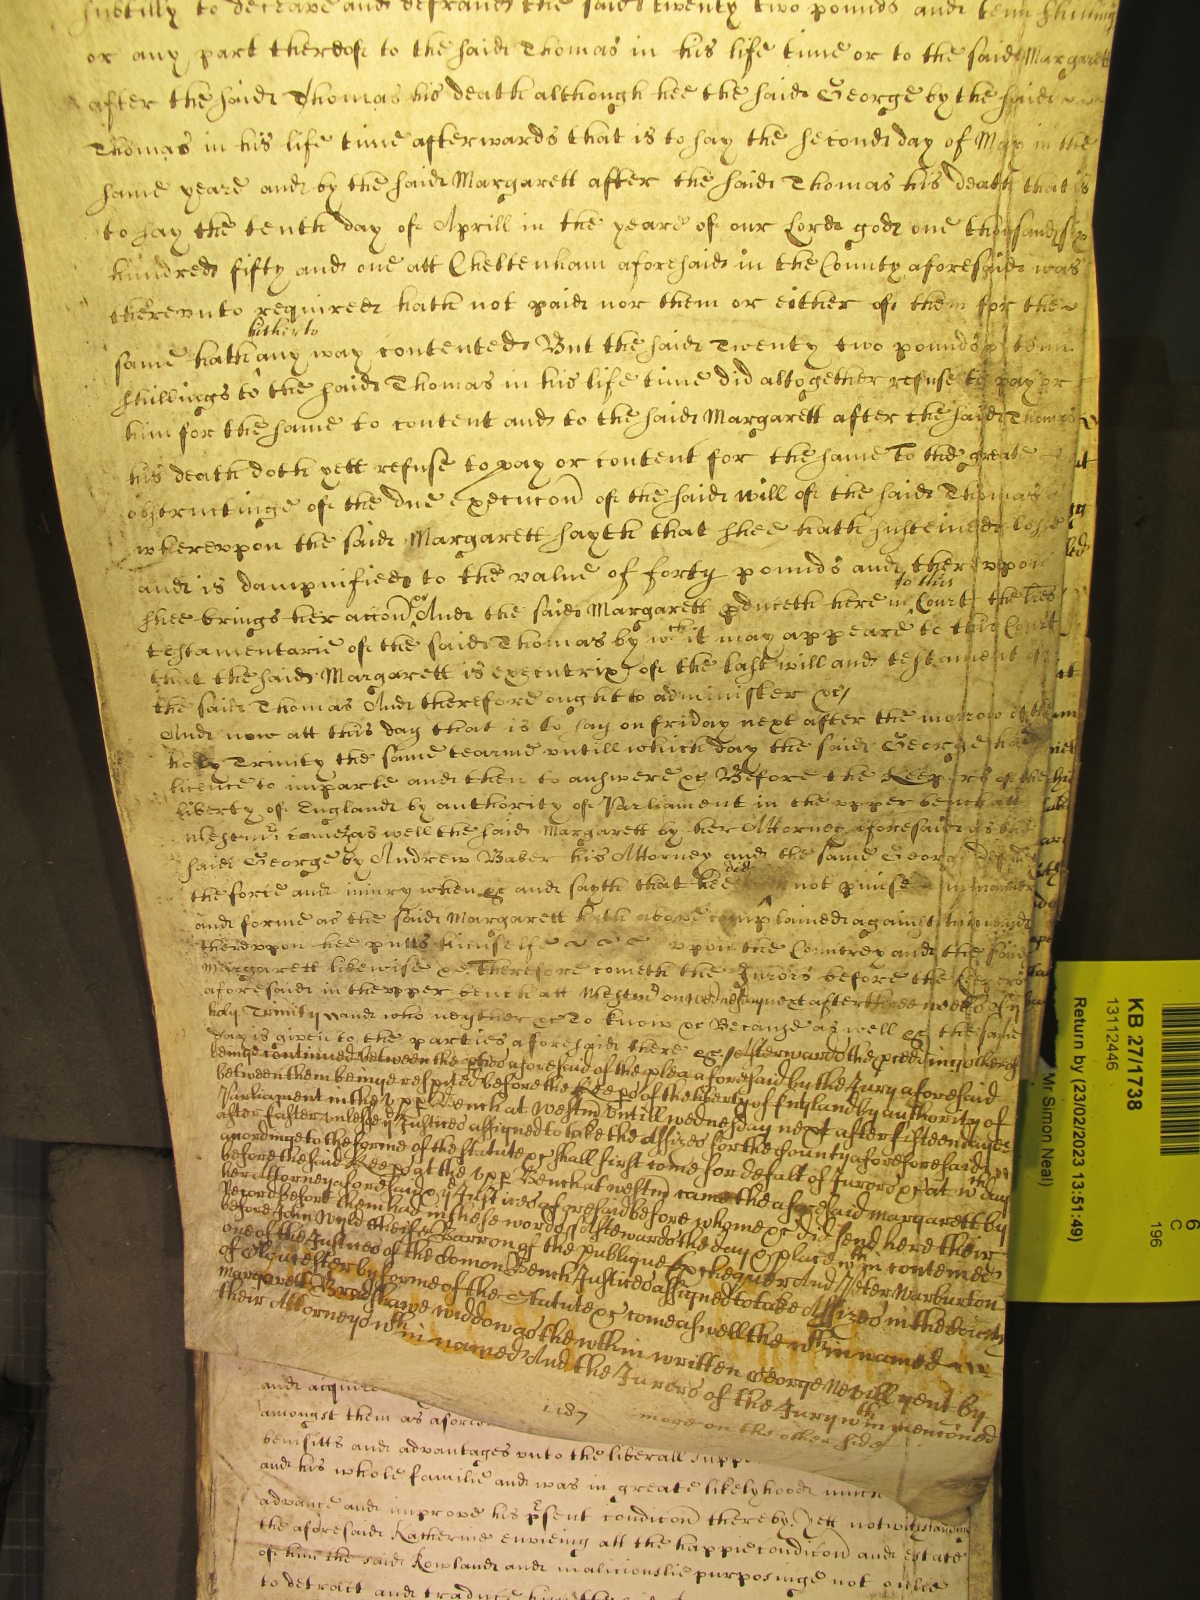 subtilly to deceave and defraud the said twenty two pounds and tenn shillings
or any part thereof to the said Thomas in his life time or to the said Margarett
after the said Thomas his death although hee the said George by the said
Thomas in his life time afterwards that is to say the second day of May in the
same yeare and by the said Margarett after the said Thomas his death that is
to say the tenth day of Aprill in the yeare of our Lord god one thousand six
hundred fifty and one att Cheltenham aforesaid in the County aforesaid was
therevnto required hath not paid nor them or either of them for the
hitherto
same hath any way contented But the said Twenty two pounds & tenn
shillings to the said Thomas in his life time did altogether refuse to pay or
him for the same to content and to the said Margarett after the said Thomas
his death doth yett refuse to pay or content for the same To the greate
obstructinge of the due execucon of the said will of the said Thomas
wherevpon the said Margarett sayth that shee hath susteined losse
and is dampnified to the value of forty pounds and therevpon
to this
shee brings her accon &c And the said Margarett pduceth here in Court the lres
testamentarie of the said Thomas by wch it may appeare to this Court
that the said Margarett is executrix of the last will and testament of
the said Thomas And therefore ought to administer &c/
And now att this day that is to say on friday next after the morrow of the
holy Trinity the same tearme vntill which day the said George had
licence to imparle and then to answere &c Before the Keepers of the
liberty of England by authority of Parliament in the vpper bench att
Westmr comes as well the said Margarett by her Attorney aforesaid as the
said George by Andrew Baber his Attorney and the same George defends
did
the force and iniury when &c and sayth that hee not pmise in manner
and forme as the said Margarett hath above complained against him and
therevpon hee putts himselfe vpon the Countrey and the said
Margarett likewise &c Therefore cometh the Jurors before the Keepers
aforesaid in the vpper bench att Westmr on Wednesday next after three weekes of y
holy Trinity and who neyther &c To know &c Because as well &c the same
Day is given to the parties aforesaid there &c./ Afterwards the pceedings thereof
beinge continued betweene the pties aforesaid of the plea aforesaid by the Jury aforesaid
betweene them beinge respited before the Keeps of the liberty of England by authority of
Parliament in the vpp Bench at Westmr vntill wednesday next after fifteene dayes
after Easter vnlesse ye Justices assigned to take the Assizes for the County aforesaid
accordinge to the forme of the statute &c shall first come for default of Jurors &c at wch day
before the said Keeps at the vpp Bench at westmr came the aforesaid Margarett by
her Attorney aforesaid & ye Justices aforesaid before whome &c did send here their
Record before them had in these words Afterwards the day & place wthin conteined
before John Wyld cheife Barron of the publique Exchequer And Peter Warburton
one of the Justices of the Comon Bench Justices assigned to take Assizes in the County
of Gloucester by forme of the Statute &c come as well the wthin named
Margarett Bradshawe widdow as the wthin written George Nevill gent by
their Attorneys wthin named And the Jurors of the Jury wthin mencioned
1187 more on the other side
and acquire
amongst them as aforesaid
benifitts and advantages vnto the liberall supp
and his whole familie and was in greate likelyhood much
advance and improve his psent condicon thereby Yett notwithstanding
the aforesaid Katherine envieing att the happie condicon and estate
of him the said Rowland and maliciouslie purposinge not onlie
to detract and traduce him the said
KB 27/1738
13112446
Return by (23/02/2023 13:51:49)
Mr Simon Neal)
6
C
196